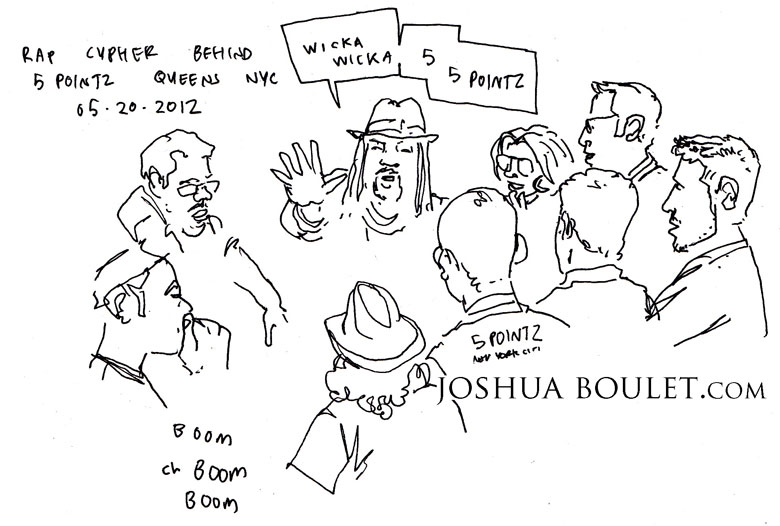 RAP CYPHER BEHIND
5 POINTZ QUEENS NYC
05·20·2012
WICKA
WICKA
5
5 POINTZ
5 POINTZ
NEW YORK CITY
JOSHUA BOULET.COM
BOOM
ch BOOM
BOOM